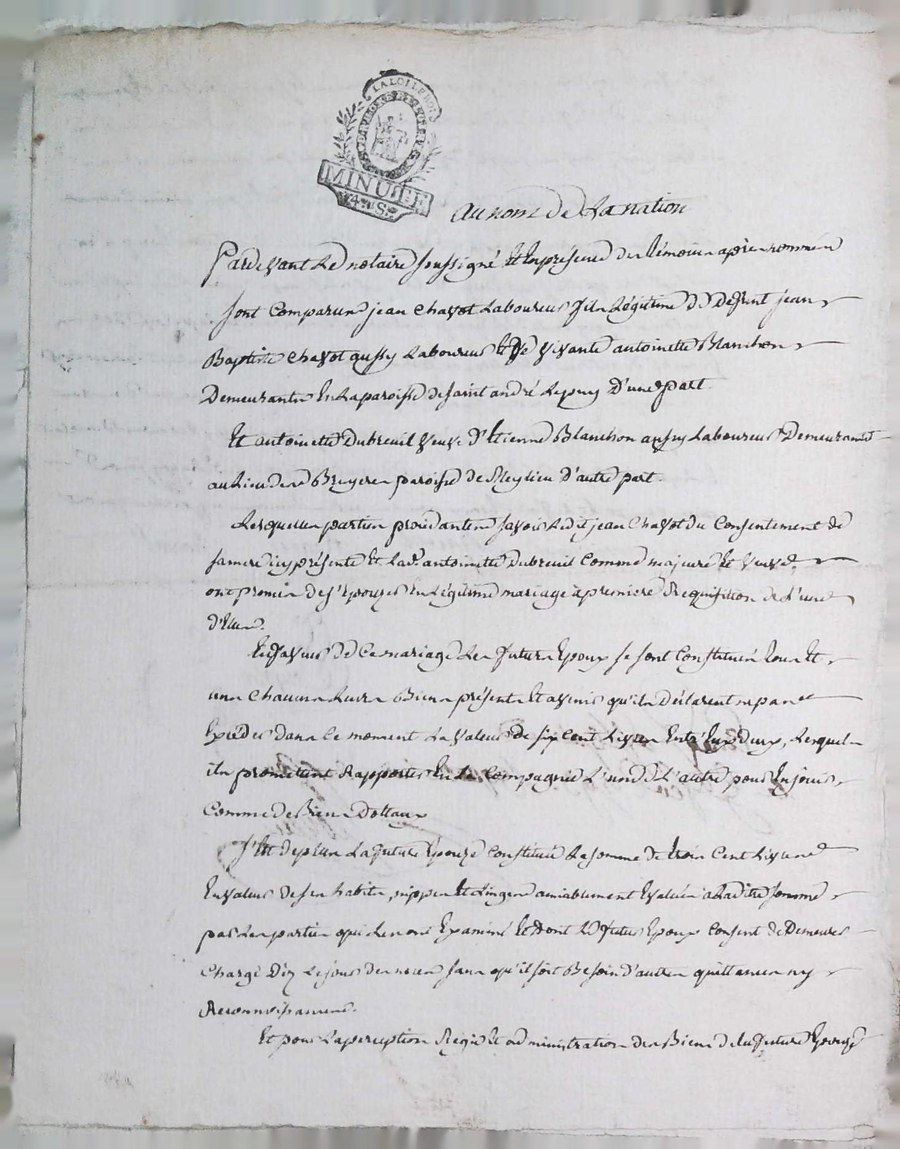 LA LOI LE ROI
MINUTE
4.s
au nom de La nation
Pardevant Le notaire soussigné Et En présence des témoins après nommés
sont Comparus jean Chavot Laboureur fils Légitime de Defunt jean
Baptiste Chavot aussy Laboureur Et de vivante antoinette Blanchon
Demeurants En La paroisse de saint andré Le puy D'une part
Et antoinette Dubreuil veuve d'Etienne Blanchon aussy Laboureur Demeurante
au Lieu des Bruyeres paroisse de d'autre part.
Lesquelles parties procédantes savoir Ledit jean Chavot du Consentement de
sa mere icy présente Et Lad.e antoinette Dubreuil Comme majeure Et veuve,
ont promis de s'Epouser En Légitime mariage à première Réquisition de L'une
d'Elles.
En faveur de Ce mariage Les futurs Epoux se sont Constitués tous Et
uns Chacuns Leurs Biens présents Et avenir qu'ils déclarent ne pas
Excéder dans Ce moment La valeur de six Cent Livres Entr'Eux deux, Lesquels
ils promettent Rapporter En La Compagnie L'un de L'autre pour En jouir
Comme de Biens Dottaux
S'Est de plus La future Epouse Constituée La somme de trois Cent Livres
En valeur de ses habits, nippes Et Linges amiablement Evalués à Ladite somme
par Les parties qui Les ont Examiné Et dont Le futur Epoux Consent de Demeurer
Chargé Dès Le jour des noces sans qu'il soit Besoin d'autres quittances ny
Reconnoissances.
Et pour La perception Regie Et administration des Biens de La future Epouse